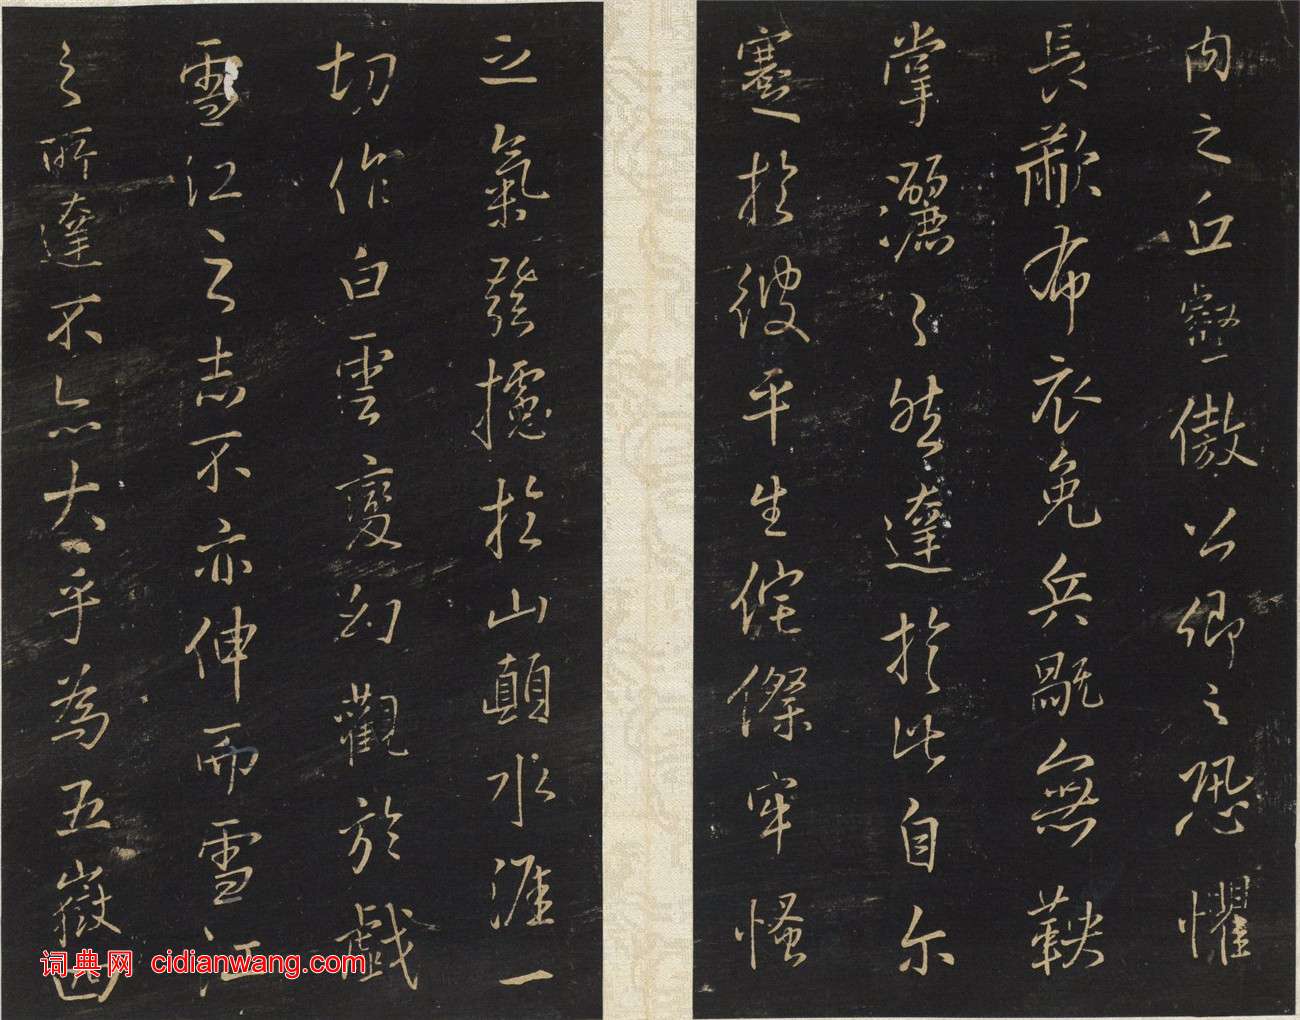 內之丘壑傲公卿之恐懼
長歗布衣免兵歐無鞅
掌灑〻然達於此自尔
蹇於彼平生侘傺牢慅
之氣發攄於山顛水涯一
切作白雲變幻觀於戲
雪江之志不亦伸而雪江
之所達不亦大乎為五嶽
词典网 cidianwang.com